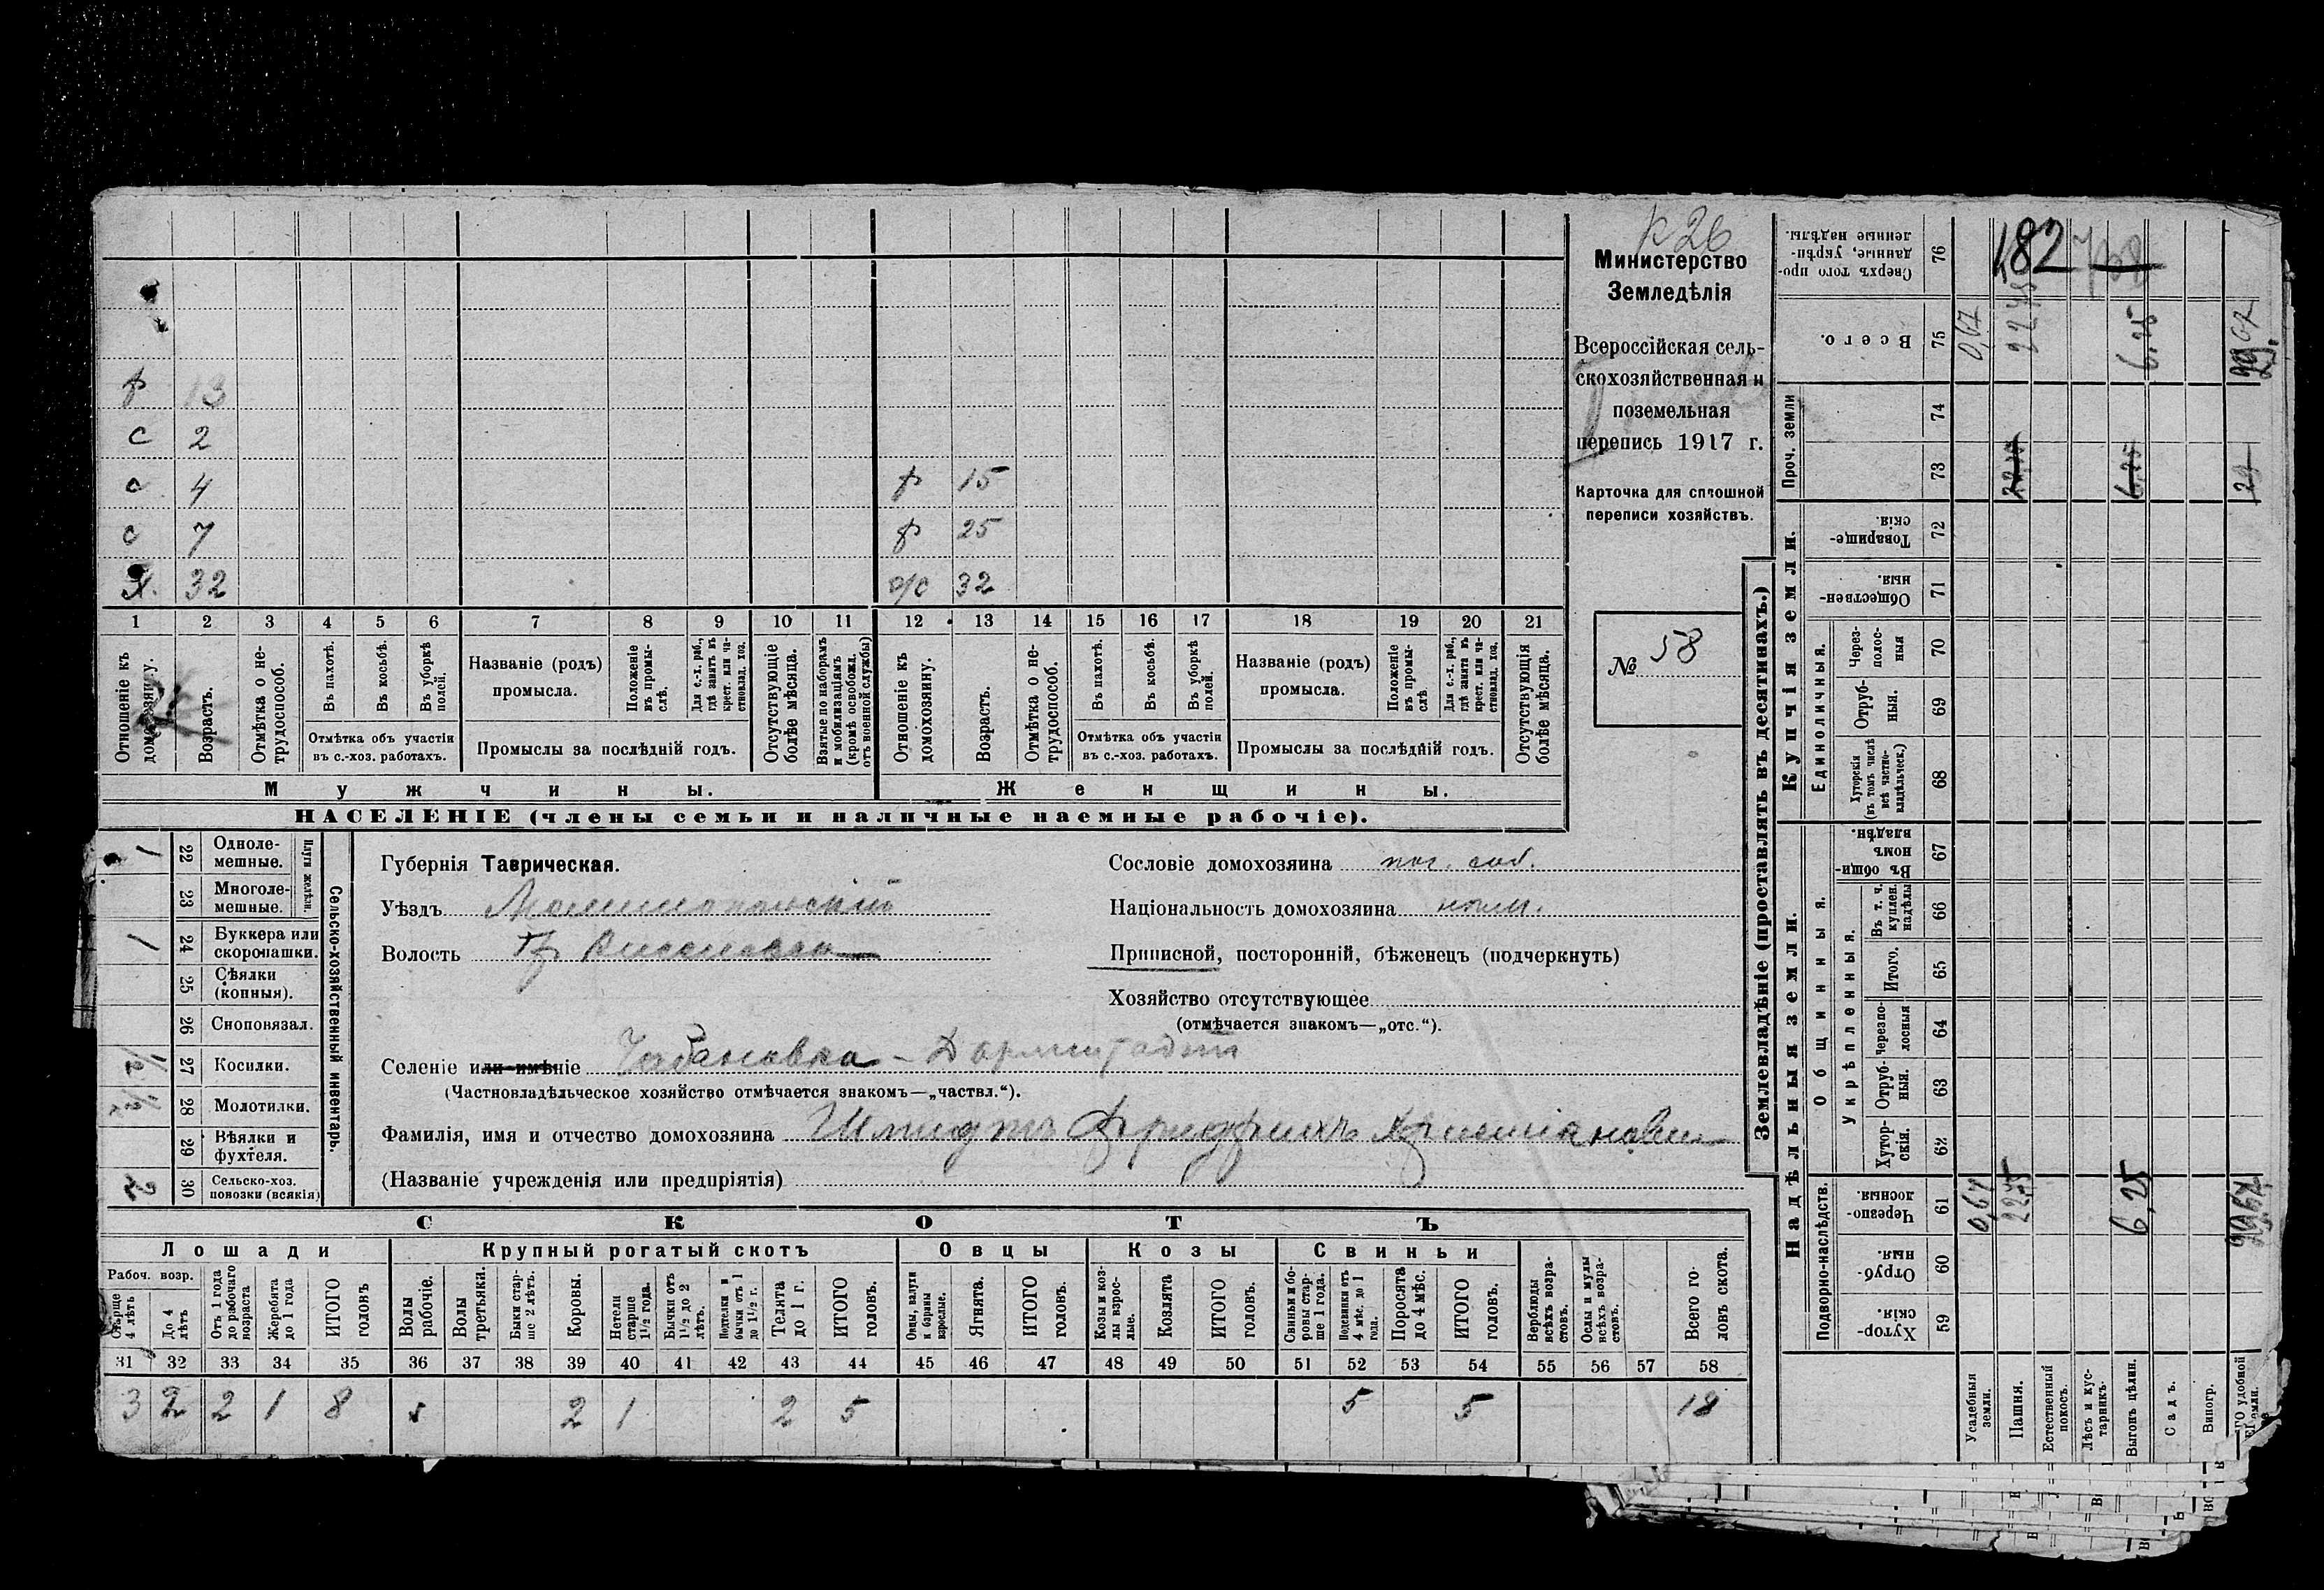 к 26
Министерство
Земледѣлія
Всероссійская сель-
скохозяйственная и
поземельная
перепись 1917 г.
Карточка для сплошной
переписи хозяйствъ.
№ 58
ф 13
с 2
с 4 ф 15
с 7 ф 25
х. 32 32
1 2 3 4 5 6 7 8 9 10 11 12 13 14 15 16 17 18 19 20 21
Отношеніе къ домохозяину.
Возрастъ.
Отмѣтка о не-трудоспособ.
Въ пахотѣ.
Въ косьбѣ.
Въ уборкѣ полей.
Отмѣтка объ участіи
въ с.-хоз. работахъ.
Названіе (родъ)
промысла.
Положеніе въ промы-слѣ.
Для с.-х. раб., гдѣ занятъ въ крест. или ча-стновлад. хоз.
Промыслы за послѣдній годъ.
Отсутствующіе болѣе мѣсяца.
Взятые по наборамъ и мобилизаціямъ (кромѣ освобожд. отъ военной службы)
Отношеніе къ домохозяину.
Возрастъ.
Отмѣтка о не-трудоспособ.
Въ пахотѣ.
Въ косьбѣ.
Въ уборкѣ полей.
Отмѣтка объ участіи
въ с.-хоз. работахъ.
Названіе (родъ)
промысла.
Положеніе въ промы-слѣ.
Для с.-х. раб., гдѣ занята въ крест. или ча-стновлад. хоз.
Промыслы за послѣдній годъ.
Отсутствующія болѣе мѣсяца.
Мужчины. Женщины.
НАСЕЛЕНІЕ (члены семьи и наличные наемные рабочіе).
Сельско-хозяйственный инвентарь.
Плуги желѣзн.
1 22 Одноле-мешные.
23 Многоле-мешные.
1 24 Буккера или скоропашки.
25 Сѣялки (конныя).
26 Сноповязал.
1/2 27 Косилки.
1/2 28 Молотилки.
29 Вѣялки и фухтеля.
2 30 Сельско-хоз. повозки (всякія)
Губернія Таврическая.
Уѣздъ
Волость
Сословіе домохозяина пос. соб.
Національность домохозяина нѣм.
Приписной, посторонній, бѣженецъ (подчеркнуть)
Хозяйство отсутствующее
(отмѣчается знакомъ—„отс.“).
Селеніе или имѣніе Чабановка - Дармштадтъ
(Частновладѣльческое хозяйство отмѣчается знакомъ—„частвл.“).
Фамилія, имя и отчество домохозяина Шмидтъ Фридрихъ Христіанович
(Названіе учрежденія или предпріятія)
СКОТЪ
Лошади Крупный рогатый скотъ Овцы Козы Свиньи
Рабоч. возр.
Старше 4 лѣтъ
До 4 лѣтъ
Отъ 1 года до рабочаго возраста
Жеребята до 1 года
ИТОГО головъ
Волы рабочіе.
Волы третьяки.
Быки стар-ше 2 лѣтъ.
Коровы.
Нетели старше 1½ года.
Бычки отъ 1½ до 2 лѣтъ.
Подтелки и бычки отъ 1 до 1½ г.
Телята до 1 г.
ИТОГО головъ.
Овцы, валухи и бараны взрослые.
Ягнята.
ИТОГО головъ.
Козы и коз-лы взрос-лые.
Козлята
ИТОГО головъ.
Свиньи и бо-ровы стар-ше 1 года.
Подсвинки отъ 4 мѣс. до 1 года.
Поросята до 4 мѣс.
ИТОГО головъ.
Верблюды всѣхъ возра-стовъ.
Ослы и мулы всѣхъ возра-стовъ.
Всего го-ловъ скота.
31 32 33 34 35 36 37 38 39 40 41 42 43 44 45 46 47 48 49 50 51 52 53 54 55 56 57 58
3 2 2 1 8 2 1 2 5 5 5 18
Землевладѣніе (проставлять въ десятинахъ.)
182
Сверхъ того про-данные, укрѣп-ленные надѣлы. 76
Всего. 75 0,67 22,75 6,25
Проч. земли
74
73 22,75 6,25 29
Купчія земли.
Товарище-скія. 72
Обществен-ныя. 71
Единоличныя.
Через-полос-ныя 70
Отруб-ныя. 69
Хуторскія (въ томъ числѣ всѣ частно-владѣльческ.) 68
Надѣльныя земли.
Общинныя.
Въ общин-номъ владѣн. 67
Укрѣпленныя.
Въ т. ч. куплен. надѣлы 66
Итого. 65
Черезпо-лосныя 64
Отруб-ныя. 63
Хутор-скія. 62
Подворно-наслѣдств.
Черезпо-лосныя. 61 0,67 22,75 6,25 29,67
Отруб-ныя. 60
Хутор-скія. 59
Усадебныя земли.
Пашня.
Естественный покосъ.
Лѣсъ и кус-тарникъ.
Выгонъ цѣлин.
Садъ.
Виногр.